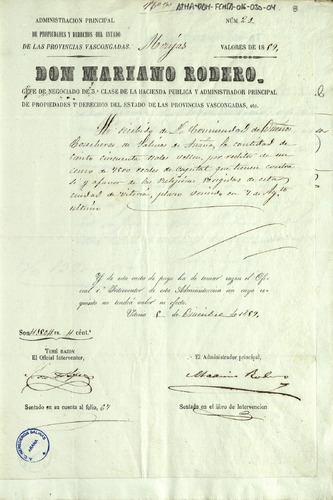 ATHA-DAH-FCHTA-016-030-04
8
ADMINISTRACION PRINCIPAL
DE PROPIEDADES Y DERECHOS DEL ESTADO
DE LAS PROVINCIAS VASCONGADAS.
Monjas
NÚM. 22
VALORES DE 1859.
DON MARIANO RODERO,
GEFE DE NEGOCIADO DE 3.ª CLASE DE LA HACIENDA PUBLICA Y ADMINISTRADOR PRINCIPAL
DE PROPIEDADES Y DERECHOS DEL ESTADO DE LAS PROVINCIAS VASCONGADAS, etc.
He recibido de la Comunidad de
Cosecheros de Salinas de Añana, la cantidad de
ciento cincuenta reales vellon, por rédito de un
censo de reales de capital que tienen contra
sí y á favor de las Religiosas Brigidas de esta
ciudad de Vitoria, plazo vencido en 7 de Ag.to
último
Y de esta carta de pago ha de tomar razon el Ofi-
cial 1.º Interventor de esta Administracion sin cuyo re-
quisito no tendrá valor ni efecto.
Vitoria 8 de Diciembre de 1859.
Son rs. cént.s
TOMÉ RAZON
El Oficial Interventor,
El Administrador principal,
Mariano Rodero
Sentado en su cuenta al folio, 67
Sentado en el libro de Intervencion
SALINAS
AÑANA